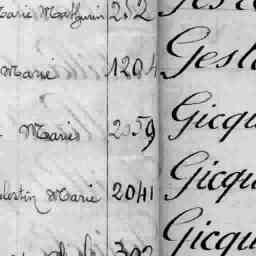 Marie Mathurin 252
Marie 1204 Gesl
Marie 2059 Gicqu
elestin Marie 2041 Gicqu
Gicqu